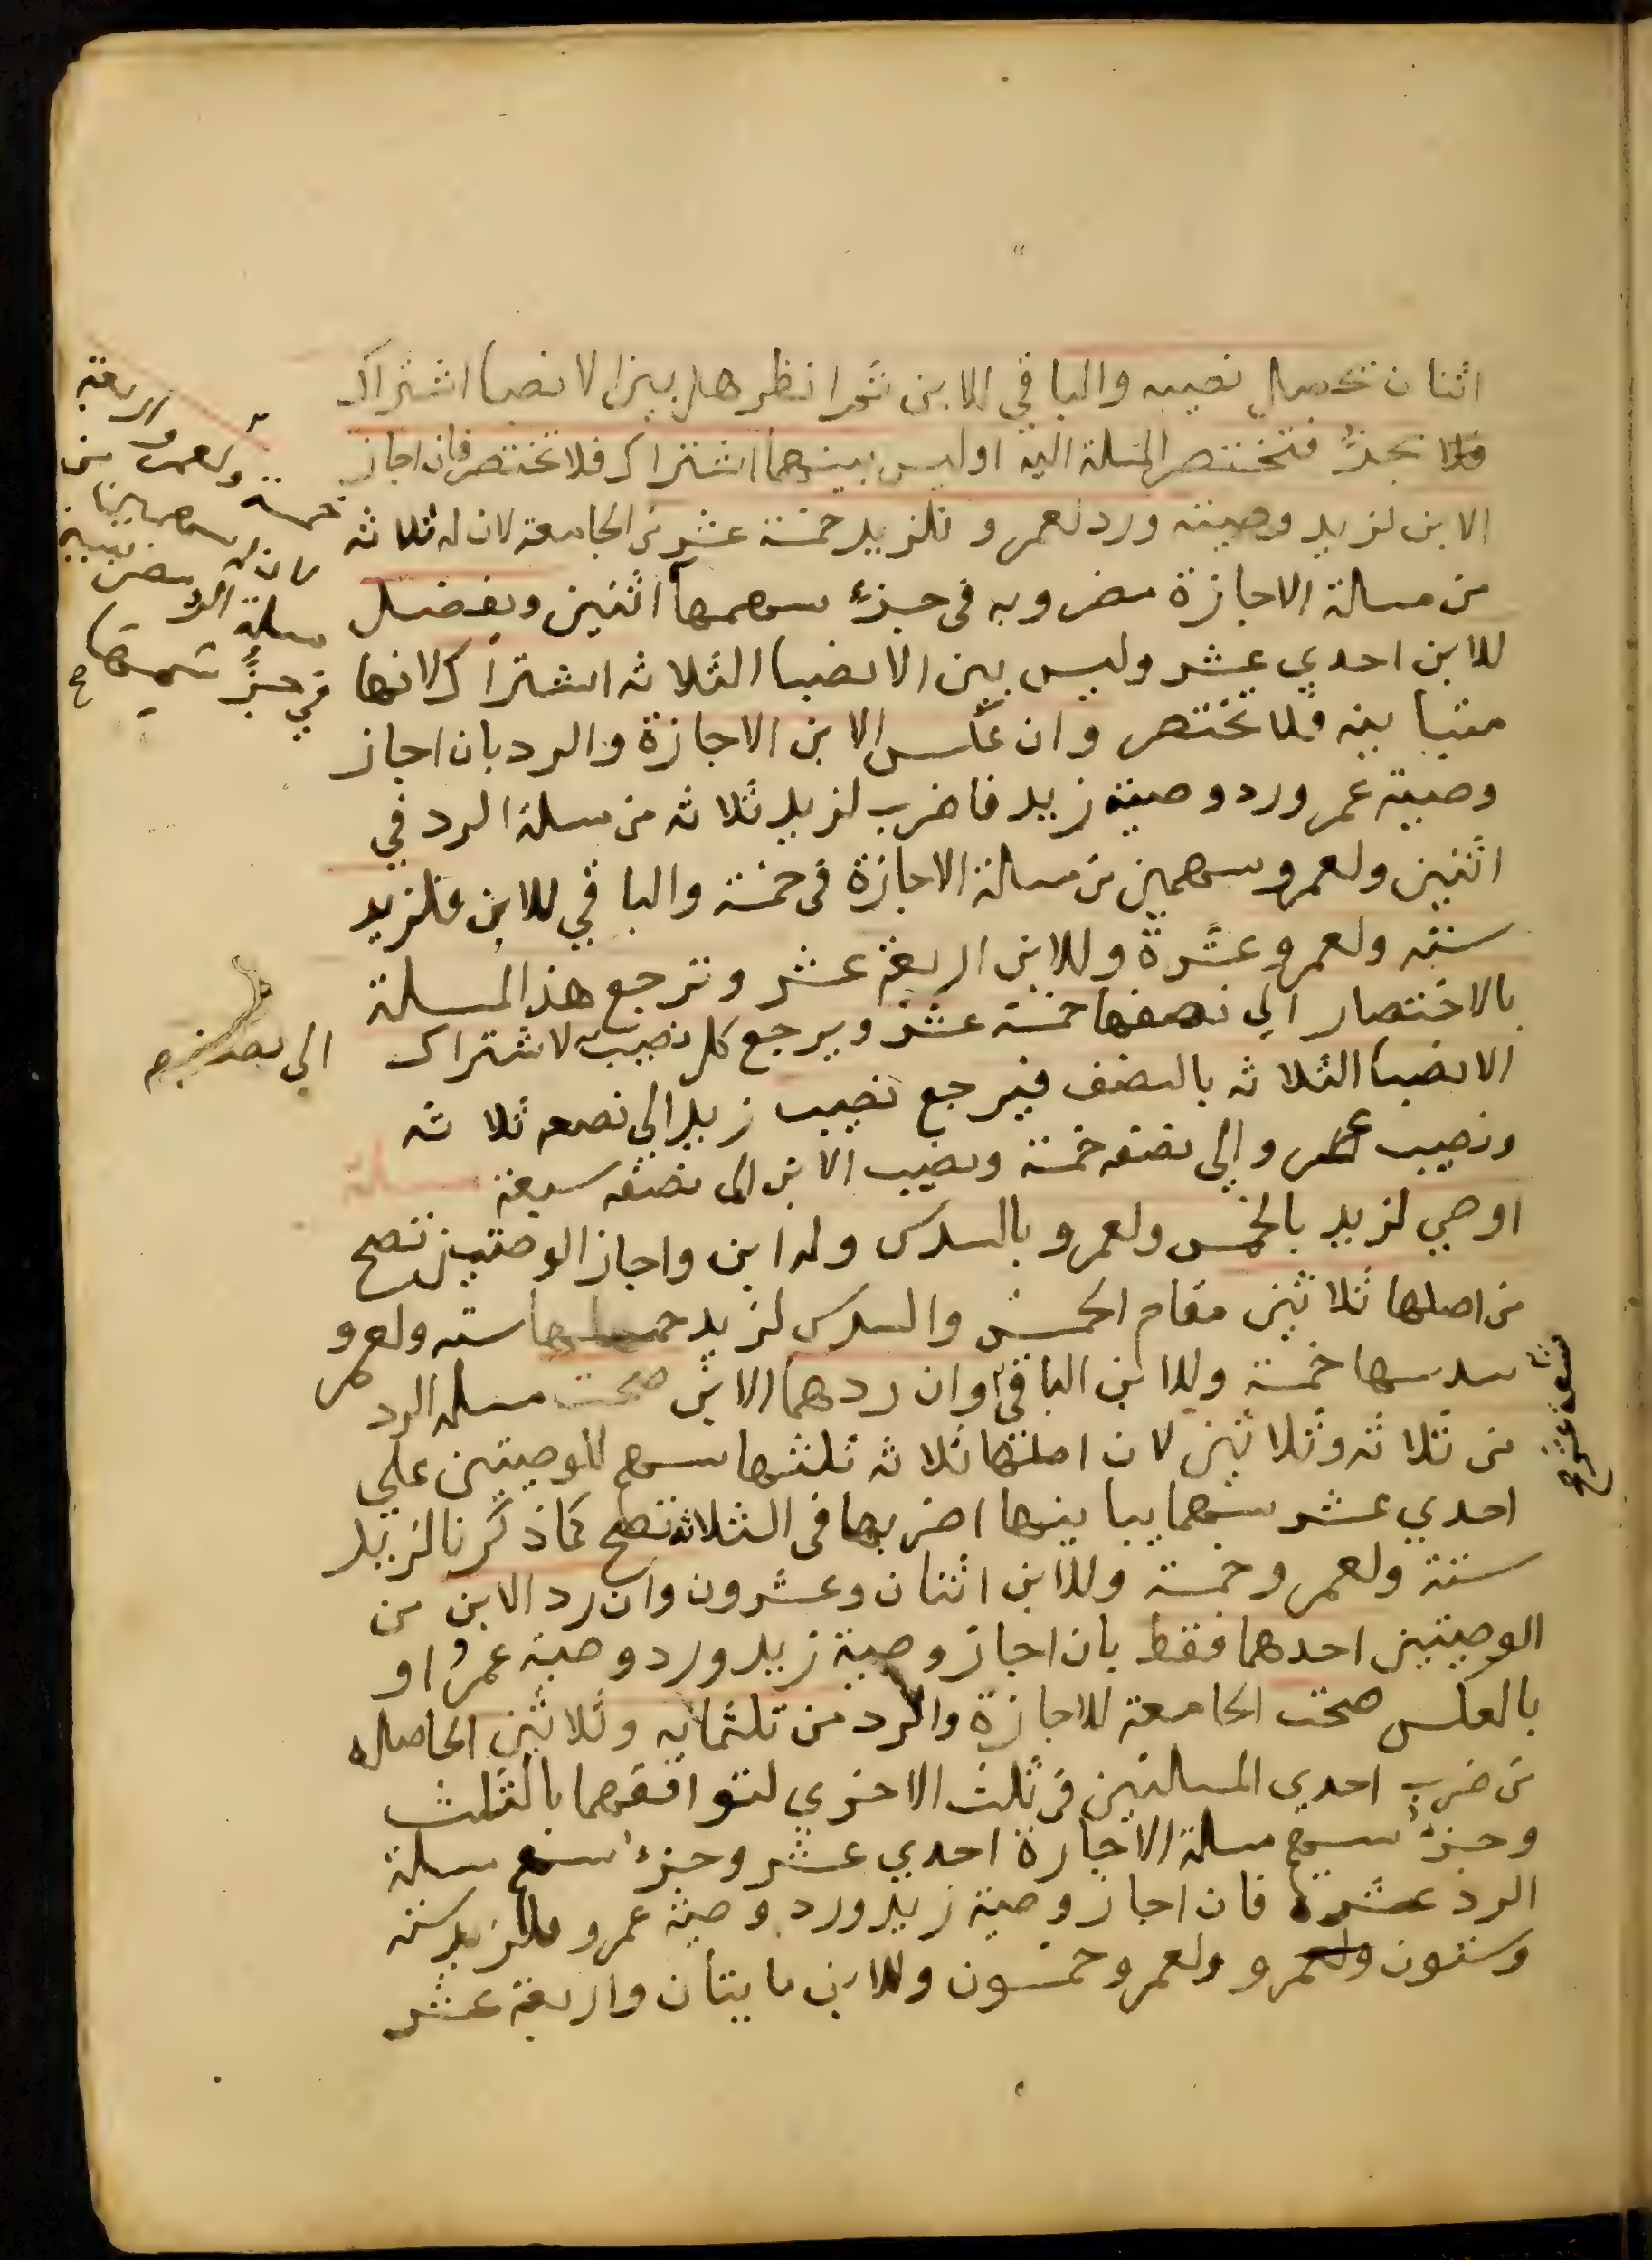 اثنان تحصل نصيبه والباقي للابن ثم انظر هل بين الانصبا اشتراك
فتختصر المسلة اليه او ليس بينهما اشتراك فلا تختصر فان اجاز
الابن لزيد وصيته ورد لعمرو فلزيد خمسة عشر من الجامعة لان له ثلاثة
من مسالة الاجازة مضروبه في جزء سهمها اثنين ويفضل
للابن احدي عشر وليس بين الانصبا الثلاثه اشتراك لانها
متباينه فلا تختصر وان عكس الابن الاجازة والرد بان اجاز
وصية عمرو ورد وصية زيد فاضرب لزيد ثلاثه من مسلة الرد في
اثنين ولعمرو سهمين من مسالة الاجازة في خمسة والباقي للابن فلزيد
ستة ولعمرو عشرة وللابن اربعة عشر وترجع هذ المسلة
بالاختصار الي نصفها خمسة عشر ويرجع كل نصيب لاشتراك
الانصبا الثلاثه بالنصف فيرجع نصيب زيد الي نصفه ثلاثه
ونصيب عمرو الي نصفه خمسة ونصيب الابن الى نصفه سبعة مسلة
اوصي لزيد بالخمس ولعمرو بالسدس وله ابن واجاز الوصيتين تصح
من اصلها ثلاثين مقام الخمس والسدس لزيد خمسها ستة ولعمرو
سدسها خمسة وللابن الباقي وان ردهما الابن صحت مسلة الرد
من ثلاثه وثلاثين لان اصلها ثلاثه ثلثها سهم للوصيتين علي
احدي عشر سهما يباينها اضربها في الثلاثة تصح كما ذكرنا لزيد
ستة ولعمرو خمسة وللابن اثنان وعشرون وان رد الابن من
الوصيتين احدهما فقط بان اجاز وصية زيد ورد وصية عمرو او
بالعكس صحت الجامعة للاجازة والرد من ثلثمايه وثلاثين الحاصله
من ضرب احدي المسالتين في ثلث الاخري لتوافقهما بالثلث
وجزء سهم مسلة الاجازة احدي عشر وجزء سهم مسلة
الرد عشرة فان اجاز وصية زيد ورد وصية عمرو فلزيد ستة
وستون ولعمرو ولعمرو خمسون وللابن مايتان واربعة عشر
ولعمرو اربعة
خمسة
لان له سهمين من
مسلة الرد مضروبين
في جزء سهمها
صح
الي نصفه
تسعة عشر صح